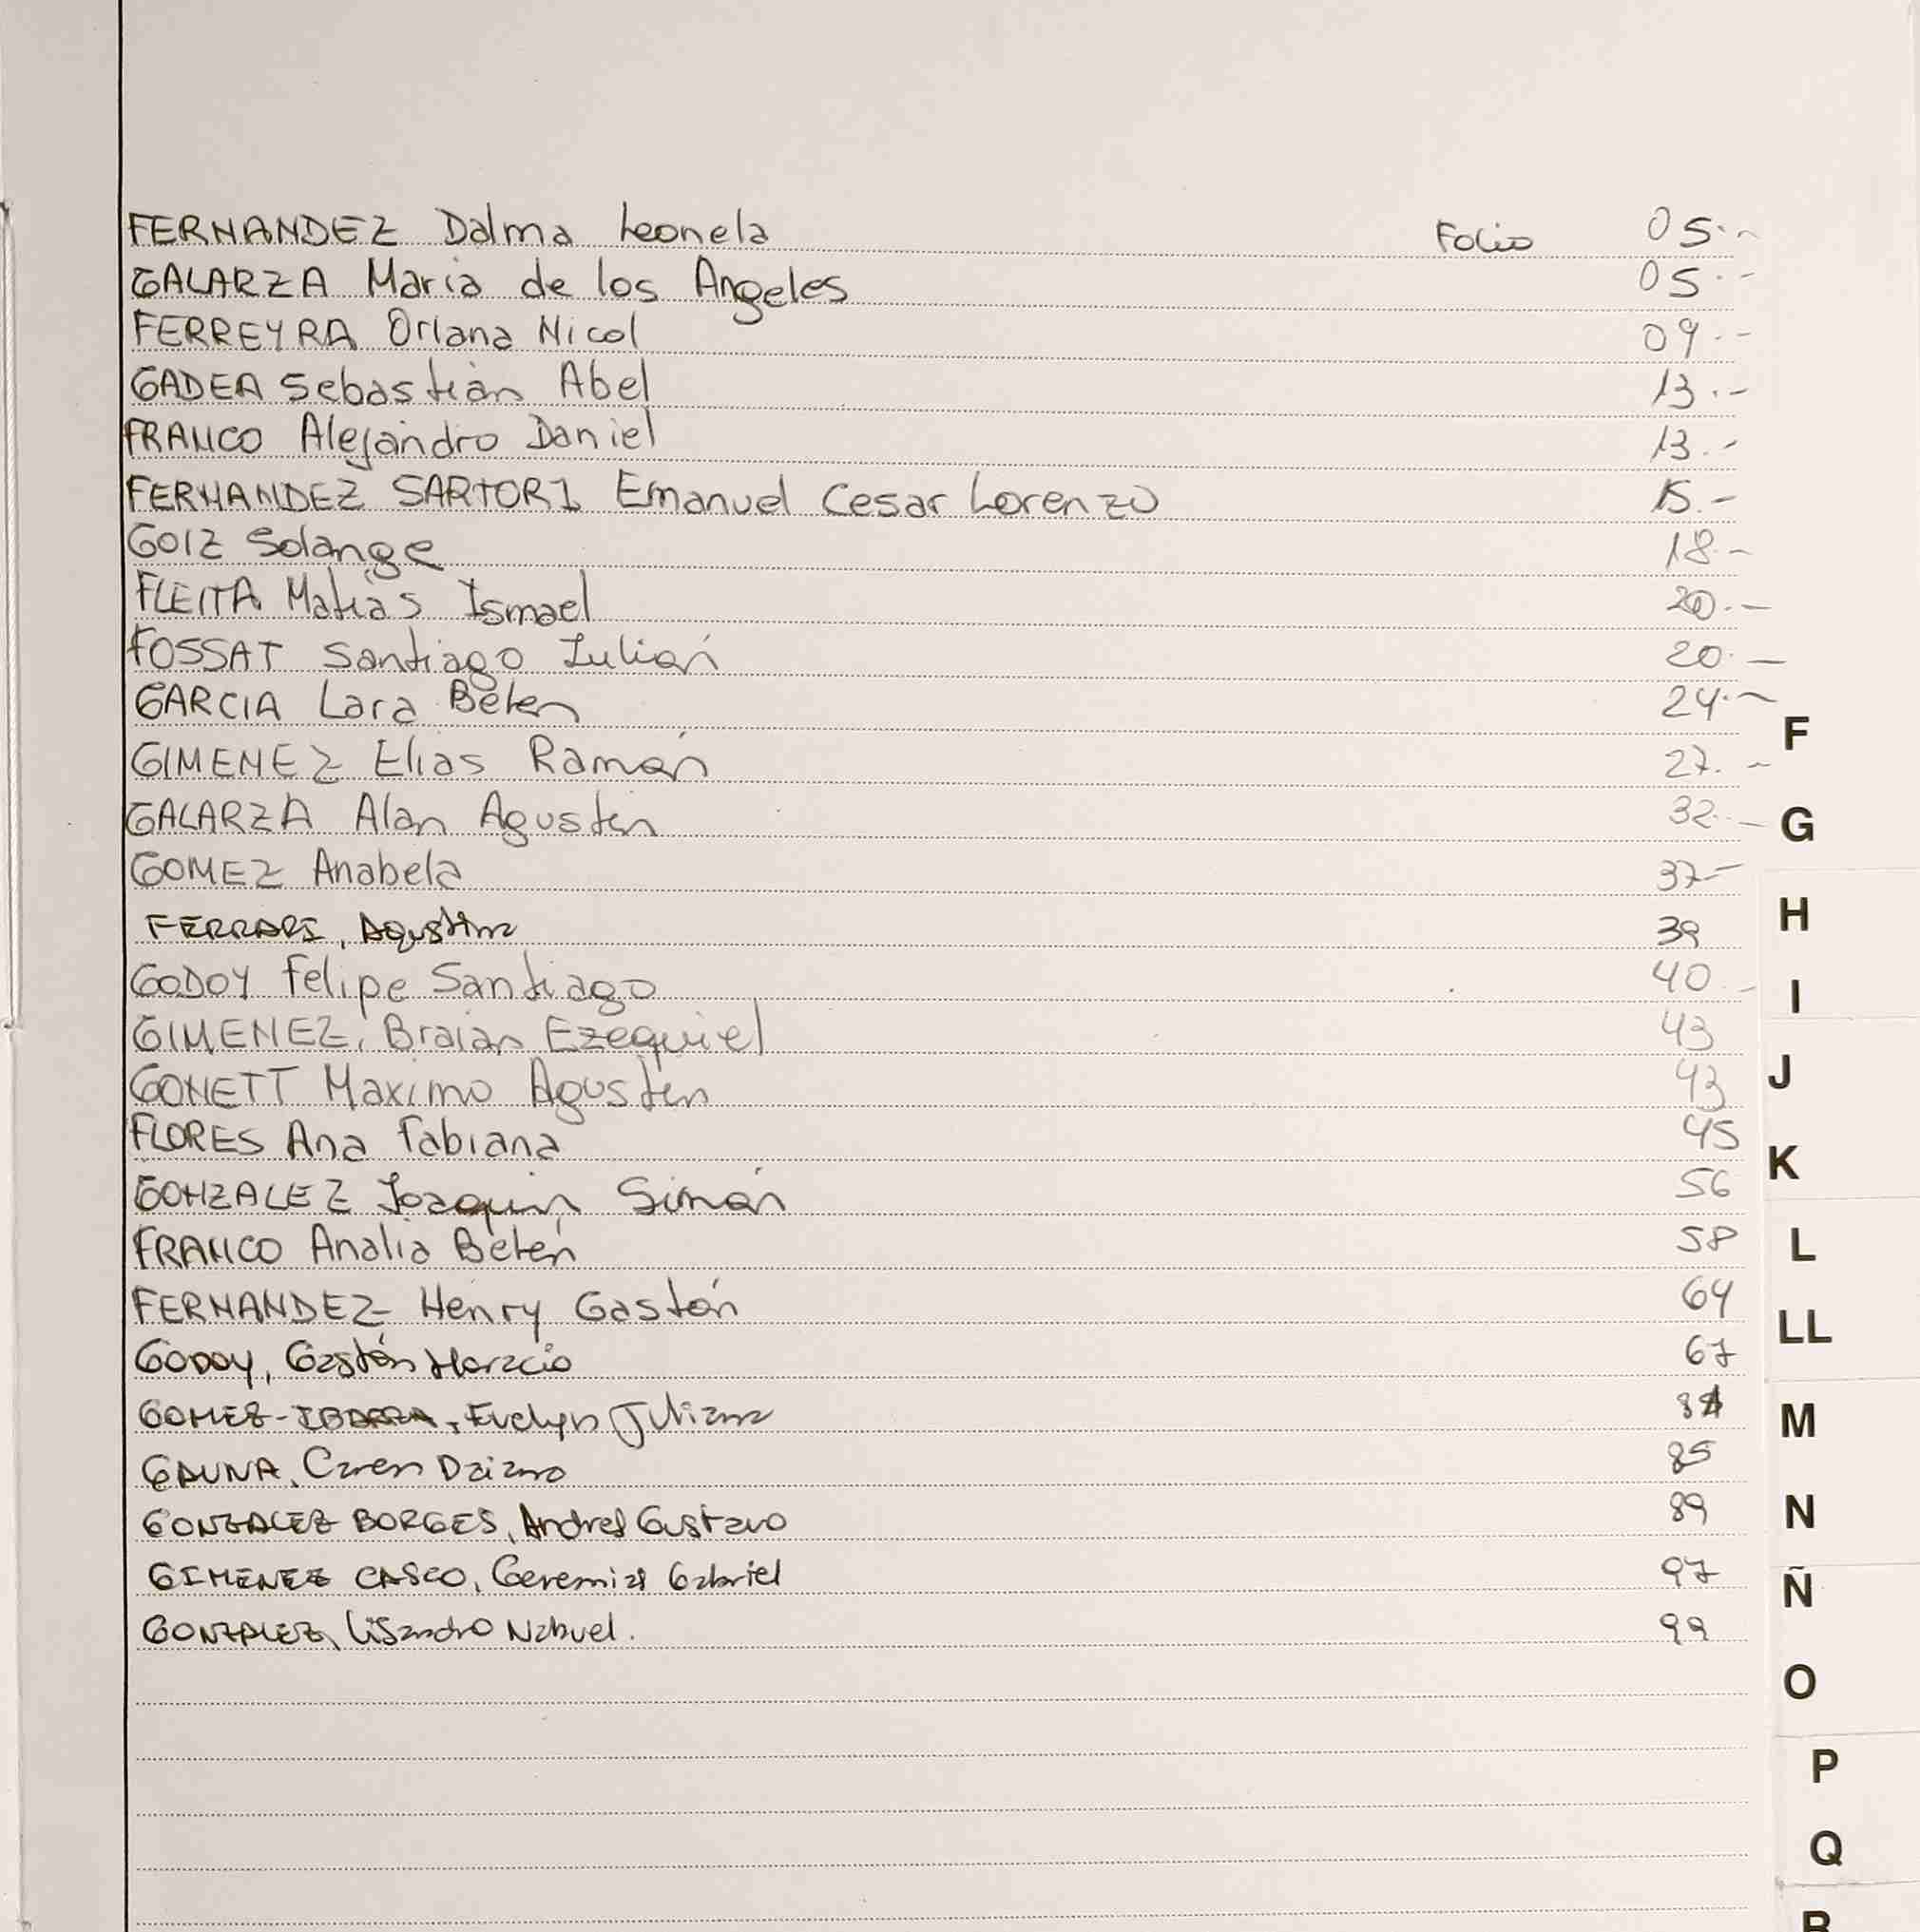 FERNANDEZ Dalma Leonela Folio 05.-
GALARZA Maria de los Angeles 05.-
FERREYRA Oriana Nicol 09.-
GADEA Sebastián Abel 13.-
FRANCO Alejandro Daniel 13.-
FERNANDEZ SARTORI Emanuel Cesar Lorenzo 15.-
GOIZ Solange 18.-
FLEITA Matias Ismael 20.-
FOSSAT Santiago Julián 20.-
GARCIA Lara Belen 24.-
GIMENEZ Elias Ramón 27.-
GALARZA Alan Agustin 32.-
GOMEZ Anabela 37-
FERRARI, Agustina 39
GODOY Felipe Santiago 40.-
GIMENEZ, Braian Ezequiel 43
GONETT Maximo Agustin 43
FLORES Ana Fabiana 45
GONZALEZ Joaquin Simón 56
FRANCO Analia Belén 58
FERNANDEZ Henry Gastón 64
GODOY, Gastón Horacio 67
GOMEZ-IBARRA, Evelyn Juliana
GAUNA, Caren Daiana 85
GONZALEZ BORGES, Andres Gustavo 89
GIMENEZ CASCO, Geremias Gabriel 97
GONZALEZ, Lisandro Nahuel. 99
F
G
H
I
J
K
L
LL
M
N
Ñ
O
P
Q
R